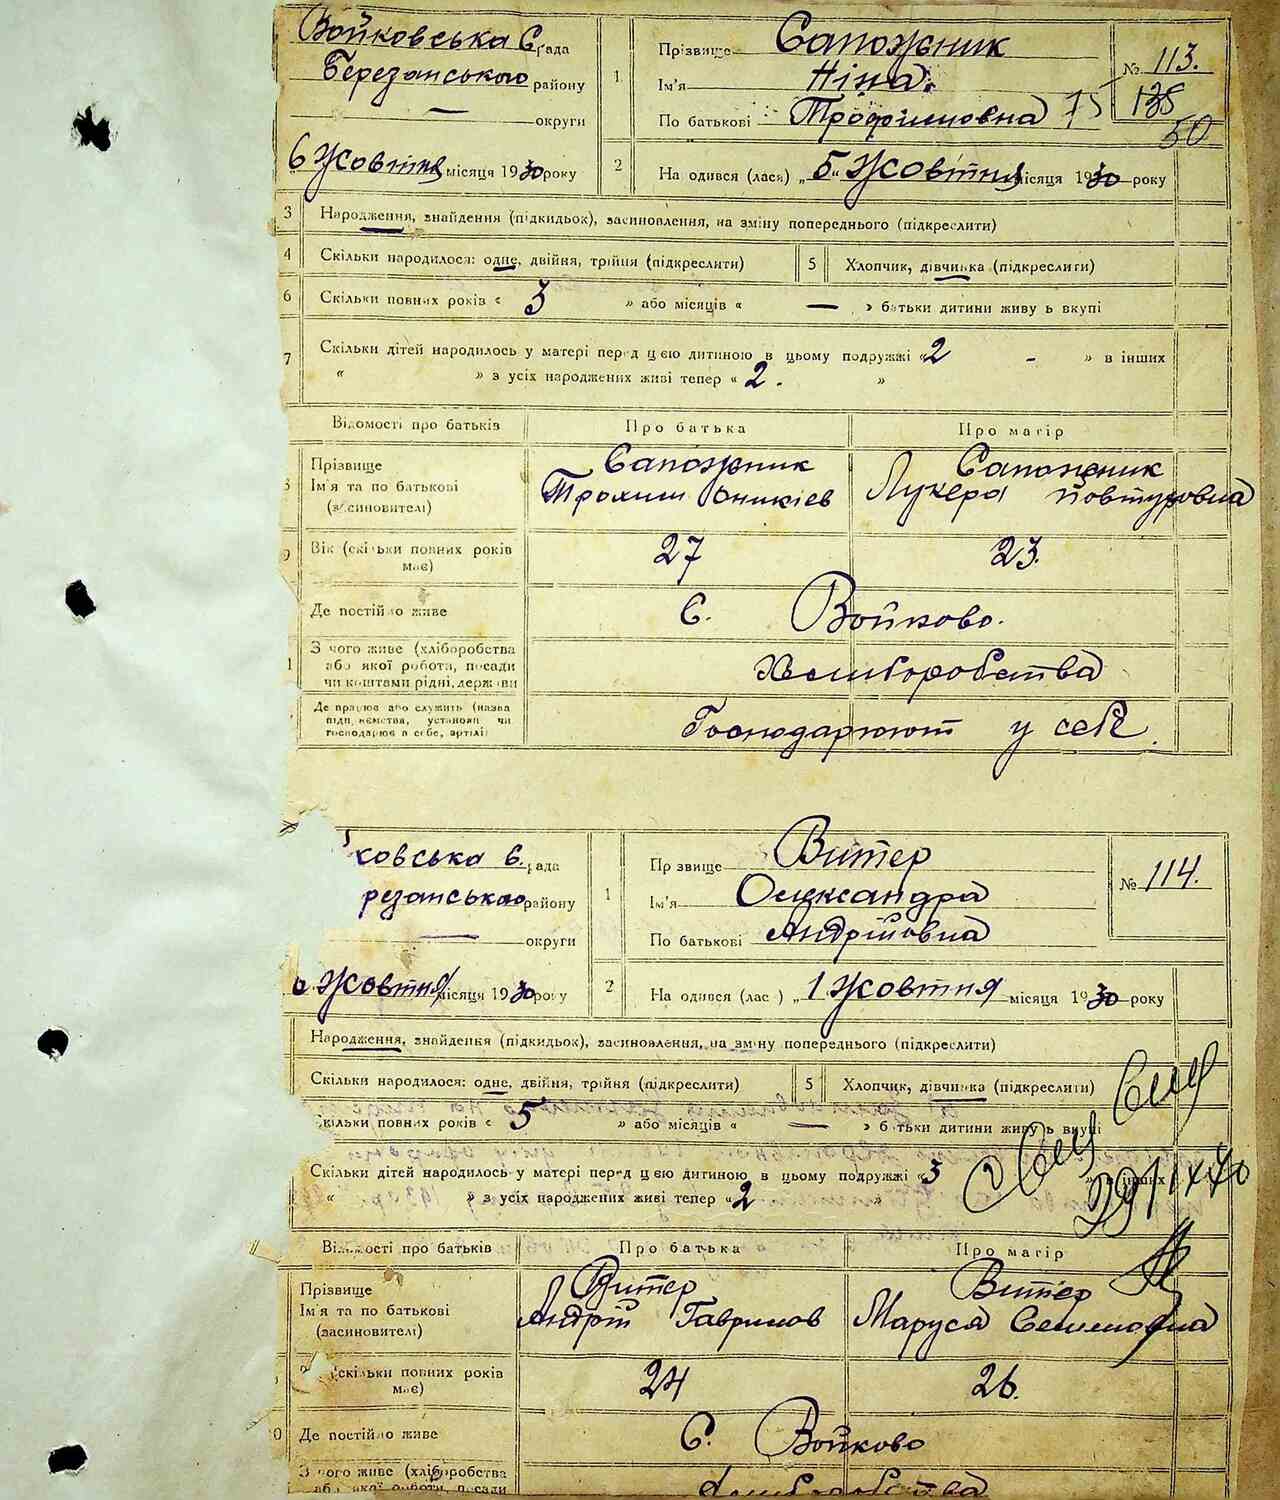 Войковська С. рада
Березанського району
— округи
6 Жовтня місяця 1930 року
1 Прізвище Сапожник
Ім'я Ніна.
По батькові Трофимовна
№ 113.
75 138
50
2 На одився (лася) „5“ Жовтня місяця 1930 року
3 Народження, знайдення (підкидьок), засиновлення, на зміну попереднього (підкреслити)
4 Скільки народилося: одне, двійня, трійня (підкреслити) 5 Хлопчик, дівчинка (підкреслити)
6 Скільки повних років « 3 » або місяців « — » батьки дитини живу ь вкупі
7 Скільки дітей народилось у матері перед цією дитиною в цьому подружжі «2 - » в інших
« » з усіх народжених живі тепер « 2. »
Відомості про батьків Про батька Про матір
Прізвище Сапожник Сапожник
Ім'я та по батькові Трохим Оникієв Лукера Повтуровна
(засиновителі)
9 Вік (скільки повних років має) 27 23.
Де постійно живе С. Войково.
З чого живе (хліборобства
або якої робота, посади Хлиборобства
чи коштами рідні, держави
Де працює або служить (назва
підп ємства, установи чи Господарюют у себе.
господарює в себе, артілі)
ковська С. рада
резанського району
— округи
Жовтня місяця 1930 року
1 Пр звище Витер
Ім'я Олександра
По батькові Андрійовна
№ 114.
2 На одився (лас ) „1 Жовтня місяця 1930 року
Народження, знайдення (підкидьок), засиновлення, на зміну попереднього (підкреслити)
Скільки народилося: одне, двійня, трійня (підкреслити) 5 Хлопчик, дівчинка (підкреслити)
кільки повних років « 5 » або місяців « — » батьки дитини живу ь вкупі
Скільки дітей народилось у матері перед цією дитиною в цьому подружжі «3 » в інших
« » з усіх народжених живі тепер «2 »
Відомості про батьків Про батька Про матір
Прізвище Витер Витер
Ім'я та по батькові Андрій Гаврилов Маруся Семеновна
(засиновителі)
(скільки повних років має) 24 26.
0 Де постійно живе С. Войково
З чого живе (хліборобства
або якої роботи, посади Хлиборобства